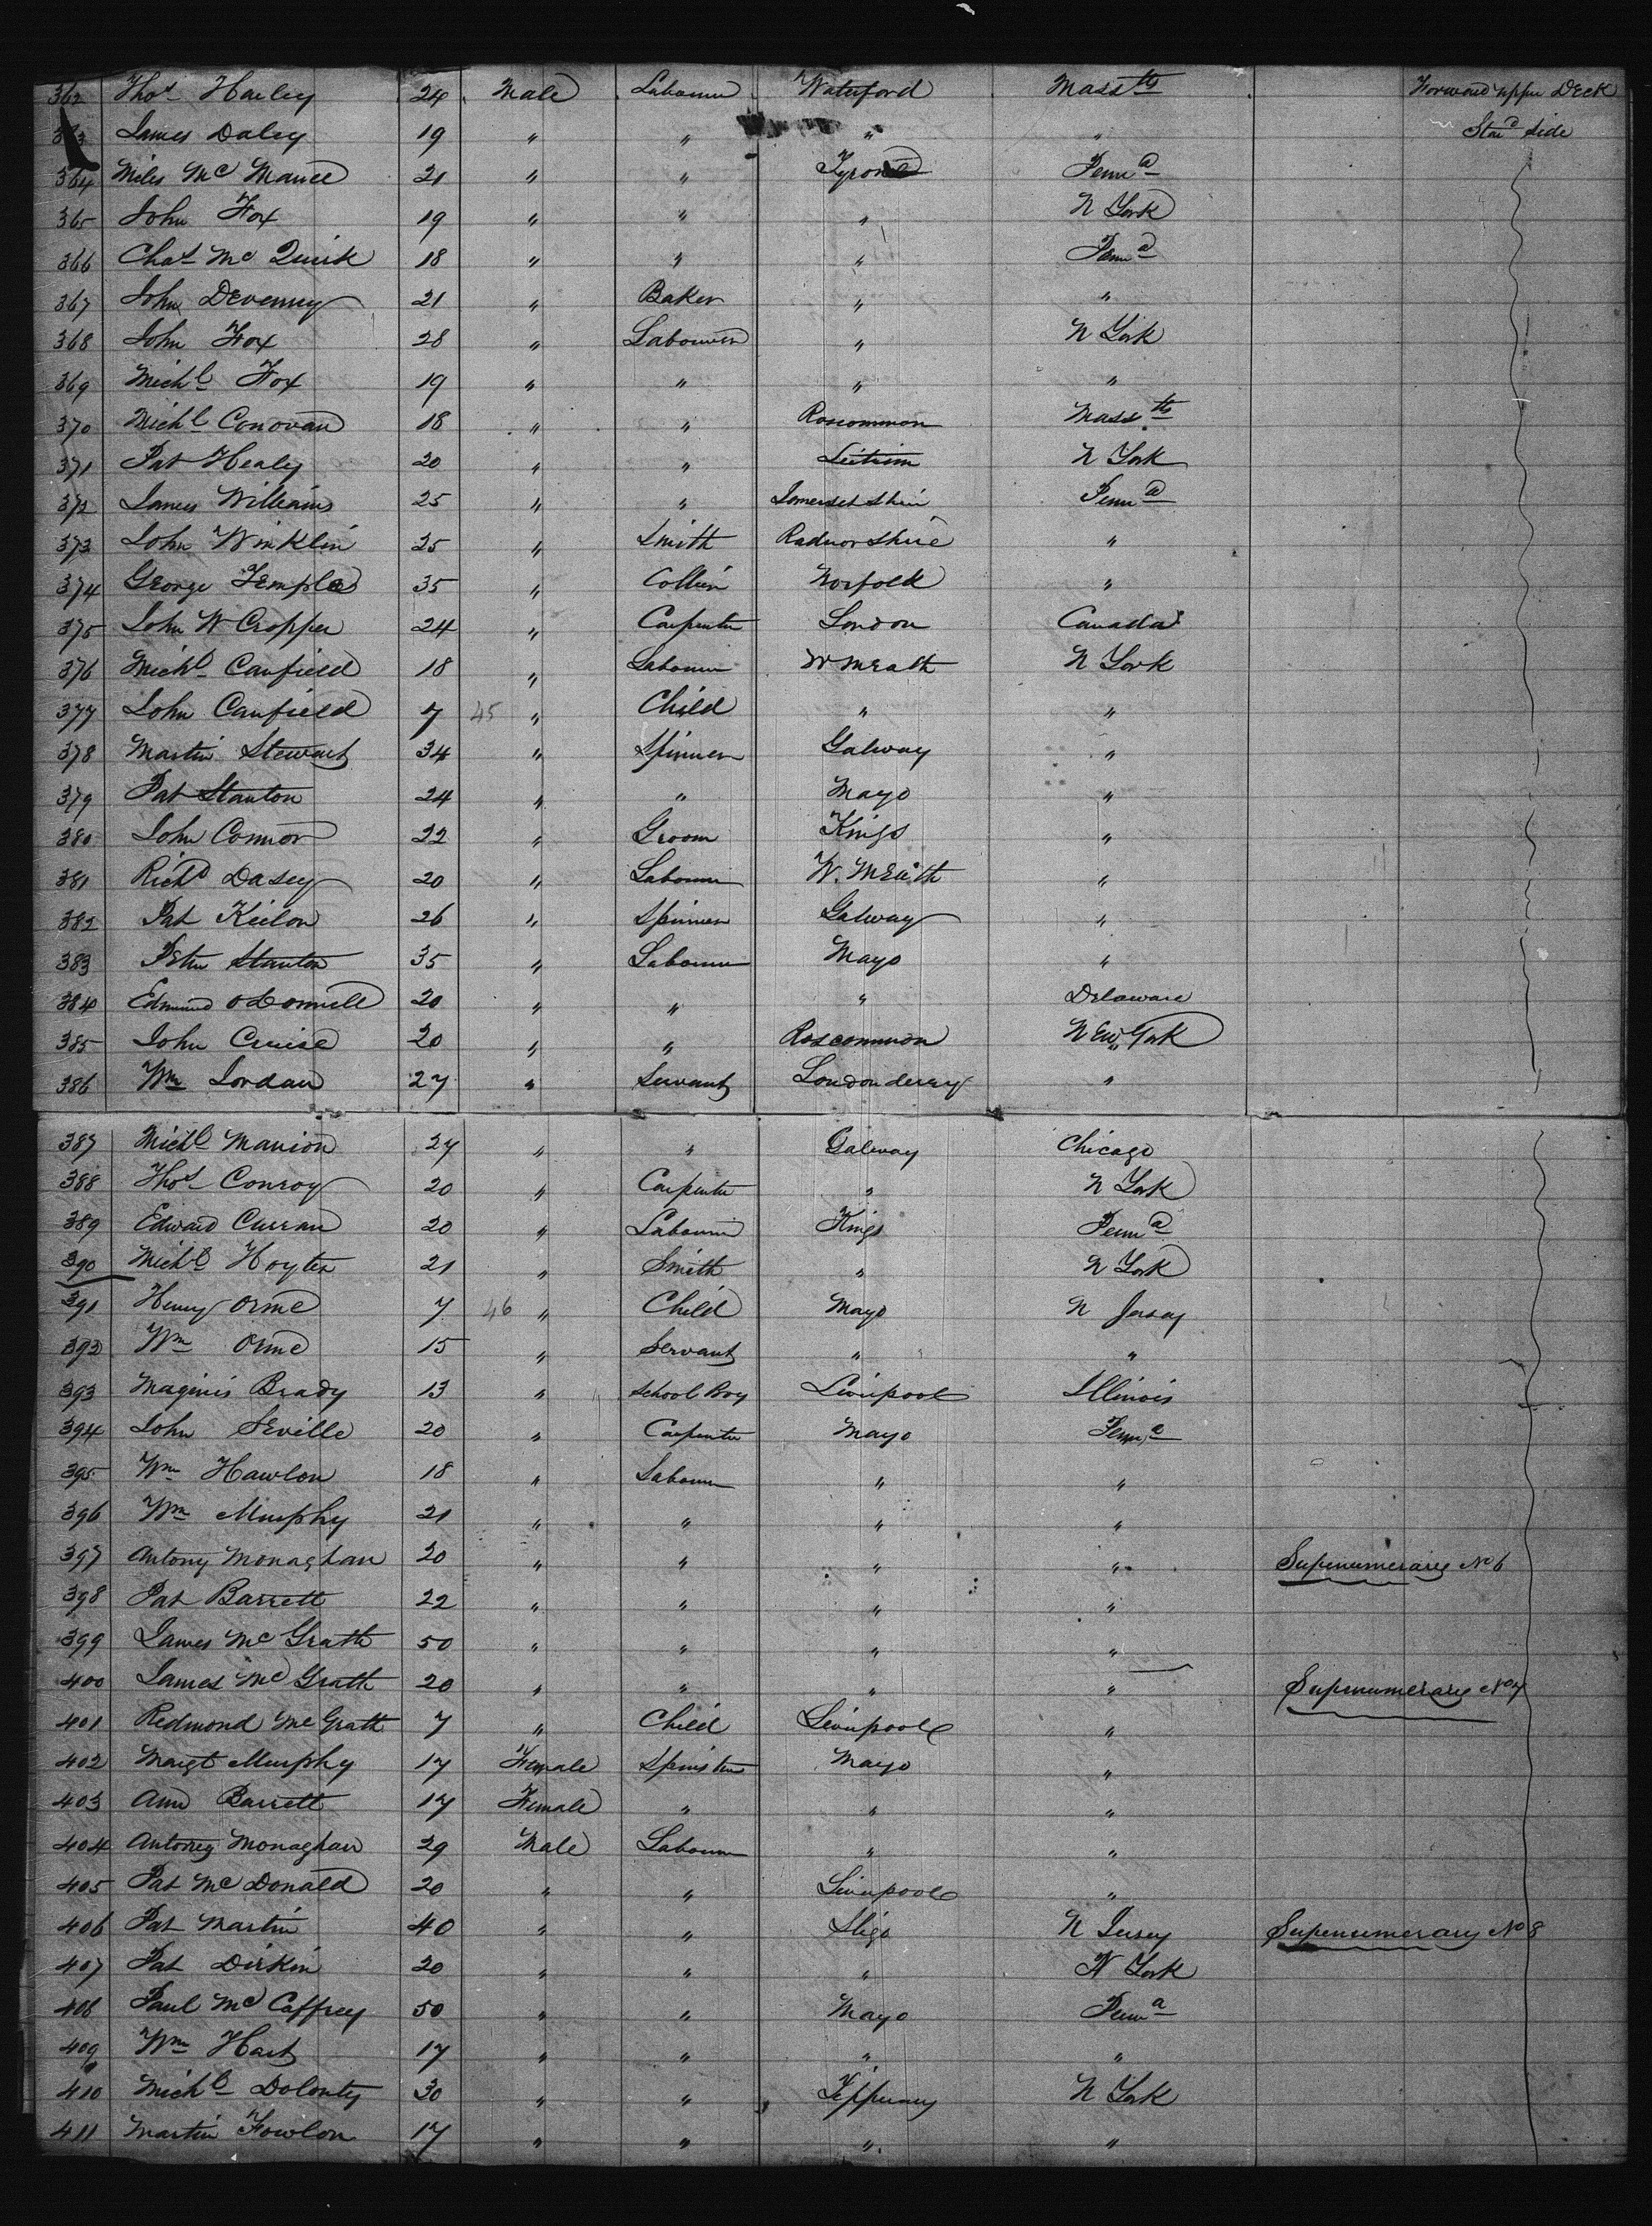 362 Thos Haley 24 Male Labourer Waterford Massts Forward upper Deck
363 James Daley 19 " " " " Stard side
364 Miles Mc Manee 21 " " Tyrone Penna
365 John Fox 19 " " " N York
366 Chas Mc Quirk 18 " " " Penna
367 John Devenny 21 " Baker " "
368 John Fox 28 " Labourer " N York
369 Michl Fox 19 " " " "
370 Michl Conovan 18 " " Roscommon Massts
371 Pat Healy 20 " " Leitrim N York
372 James Williams 25 " " Somerset Shire Penna
373 John Winklin 25 " Smith Radnor Shire "
374 George Temple 35 " Collier Norfolk "
375 John W Cropper 24 " Carpenter London Canada
376 Michl Canfield 18 " Labourer W Meath N York
377 John Canfield 7 45 " Child " "
378 Martin Stewart 34 " Spinner Galway "
379 Pat Stanton 24 " " Mayo "
380 John Connor 22 " Groom Kings "
381 Richd Dasey 20 " Labourer W. Meath "
382 Pat Kielon 26 " Spinner Galway "
383 Peter Stanton 35 " Labourer Mayo "
384 Edmund O Donnell 20 " " " Delaware
385 John Cruise 20 " " Roscommon New York
386 Wm Jordan 27 " Servant Londonderry "
387 Michl Manion 27 " " Galway Chicago
388 Thos Conroy 20 " Carpenter " N York
389 Edward Curran 20 " Labourer Kings Penna
390 Michl Hoyter 21 " Smith " N York
391 Henry Orme 7 46 " Child Mayo N Jersey
392 Wm Orme 15 " Servant " "
393 Maginis Brady 13 " School Boy Liverpool Illinois
394 John Seville 20 " Carpenter Mayo Penna
395 Wm Hawlon 18 " Labourer " "
396 Wm Murphy 21 " " " "
397 Antony Monaghan 20 " " " " Supernumerary No 6
398 Pat Barrett 22 " " " "
399 James Mc Grath 50 " " " "
400 James Mc Grath 20 " " " " Supernumerary No 7
401 Redmond Mc Grath 7 " Child Liverpool "
402 Margt Murphy 17 Female Spinster Mayo "
403 Ann Barrett 17 Female " " "
404 Antony Monaghan 29 Male Labourer " "
405 Pat Mc Donald 20 " " Liverpool "
406 Pat Martin 40 " " Sligo N Jersey Supernumerary No 8
407 Pat Dirkin 20 " " " N York
408 Paul Mc Caffrey 50 " " Mayo Penna
409 Wm Hart 17 " " " "
410 Michl Dolonty 30 " " Tipperary N York
411 Martin Fowlon 17 " " " "